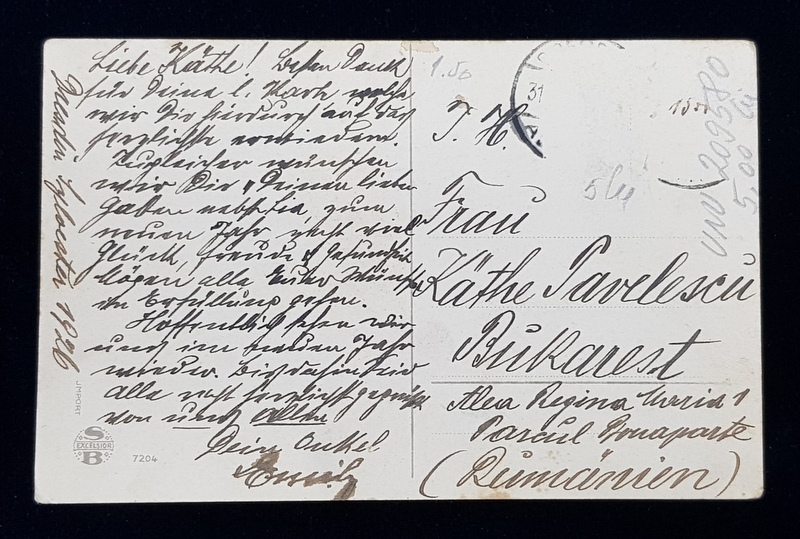 Dresden Sylvester 1926
Liebe Käthe! Besten Dank
für Deine l. Karte, welche
wir Dir hierdurch auf das
herzlichste erwiedern.
Zugleicher wünschen
wir Dir & Deinen lieben
Gatten nebst Eia, zum
neuen Jahr, recht viel
Glück, Freude & Gesundheit
Mögen alle Eure Wünsche
in Erfüllung gehen.
Hoffentlich sehen wir
uns im neuen Jahr
wieder. Bis dahin seid
alle recht herzlich gegrüßt
von uns Allen
Dein Onkel
Emil
1.50
31
T. H.
150
5 lei
UNV 209580
5,00 lei
Frau
Käthe Pavelescu
Bukarest
Alea Regina Maria 1
Parcul Bonaparte
(Rumänien)
IMPORT
S
EXCELSIOR
B
7204